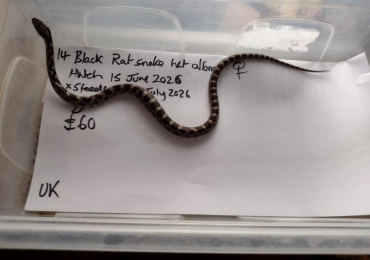 14 Black Rat snake het albino ♀
Hatch 15 June 2026
x5 feeds July 2026
£60
UK